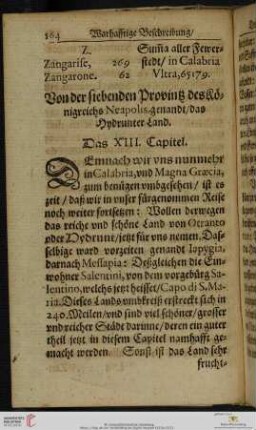 164 Warhafftige Beschreibung/
Z. Suma aller Fewer-
Zangarise, 269 stedt/ in Calabria
Zangarone. 62 Vltra, 65179.
Von der siebenden Provintz des Kö-
nigreichs Neapolis, genandt/ das
Hydrunter Land.
Das XIII. Capitel.
DEmnach wir vns nunmehr
in Calabria, vnd Magna Græcia,
zum benügen vmbgesehen/ ist es
zeit/ daß wir in vnser fürgenommen Reise
noch weiter fortsetzen: Wollen derwegen
das reiche vnd schöne Land von Otranto
oder Hydrunt/ jetzt für vns nemen. Das-
selbige ward vorzeiten genandt Iapygia,
darnach Messapia: Deßgleichen die Ein-
wohner Salentini, von dem vorgebürg Sa-
lentino, welchs jetzt heisset/ Capo di S. Ma-
ria. Dieses Lands vmbkreiß erstreckt sich in
240. Meilen/ vnd sind viel schöner/ grosser
vnd reicher Städt darinne/ deren ein guter
theil jetzt in diesem Capitel namhafft ge-
macht werden. Sonst ist das Land sehr
frucht-